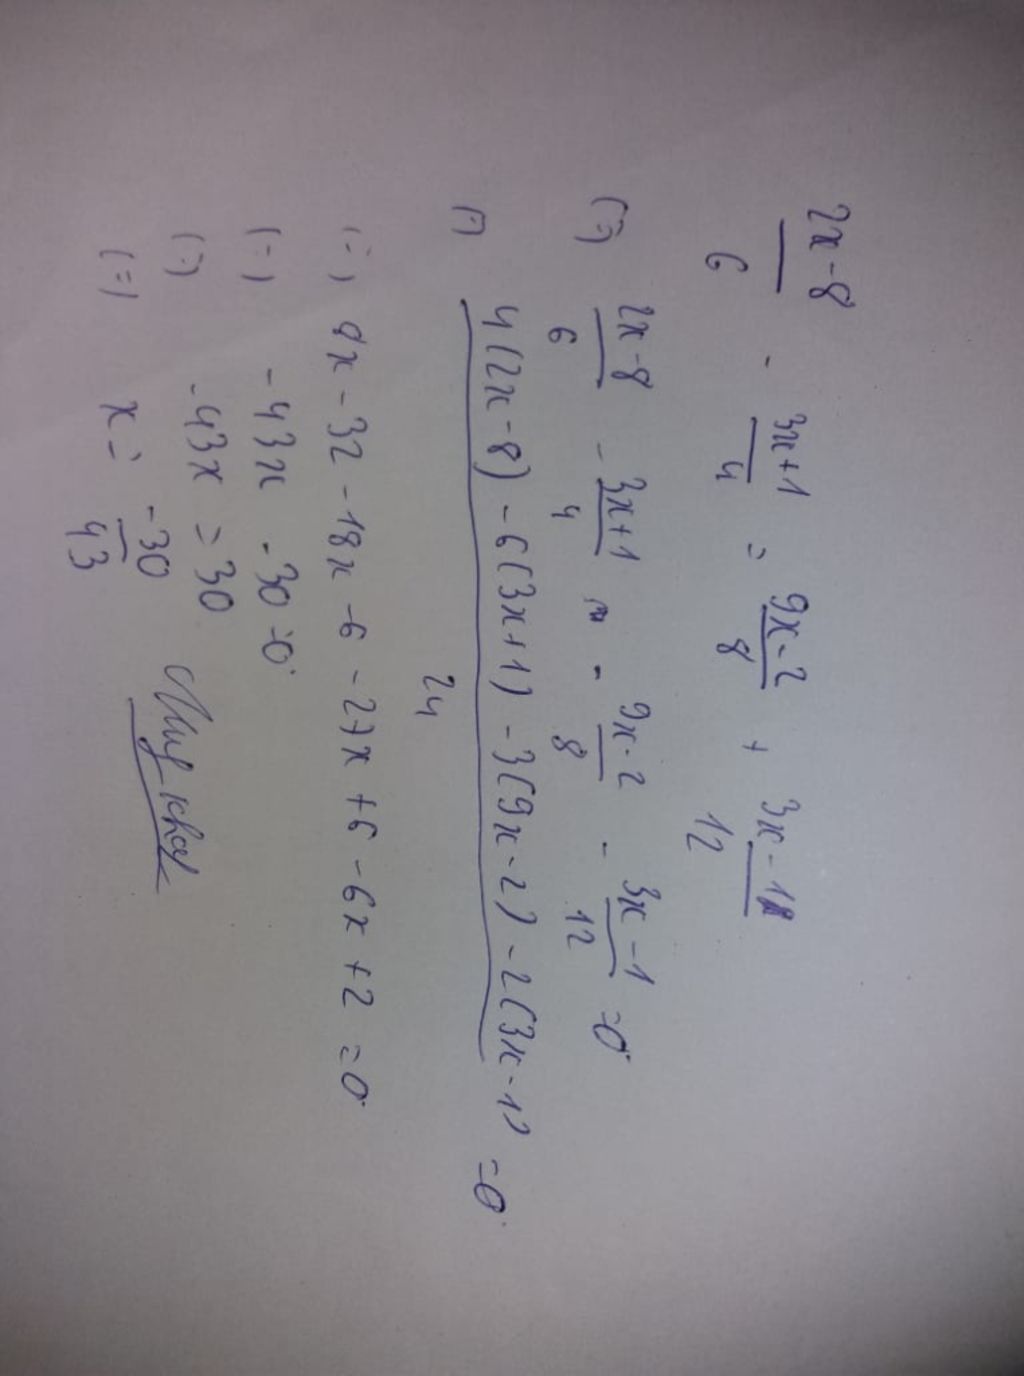 2x-8/6 - 3x+1/4 = 9x-2/8 + 3x-1/12
(=) 2x-8/6 - 3x+1/4 - 9x-2/8 - 3x-1/12 =0
(=) 4(2x-8) - 6(3x+1) - 3(9x-2) - 2(3x-1) =0
24
(=) 8x - 32 - 18x - 6 - 27x + 6 - 6x + 2 = 0
(=) -43x - 30 =0
(=) -43x = 30
(=) x = -30/43